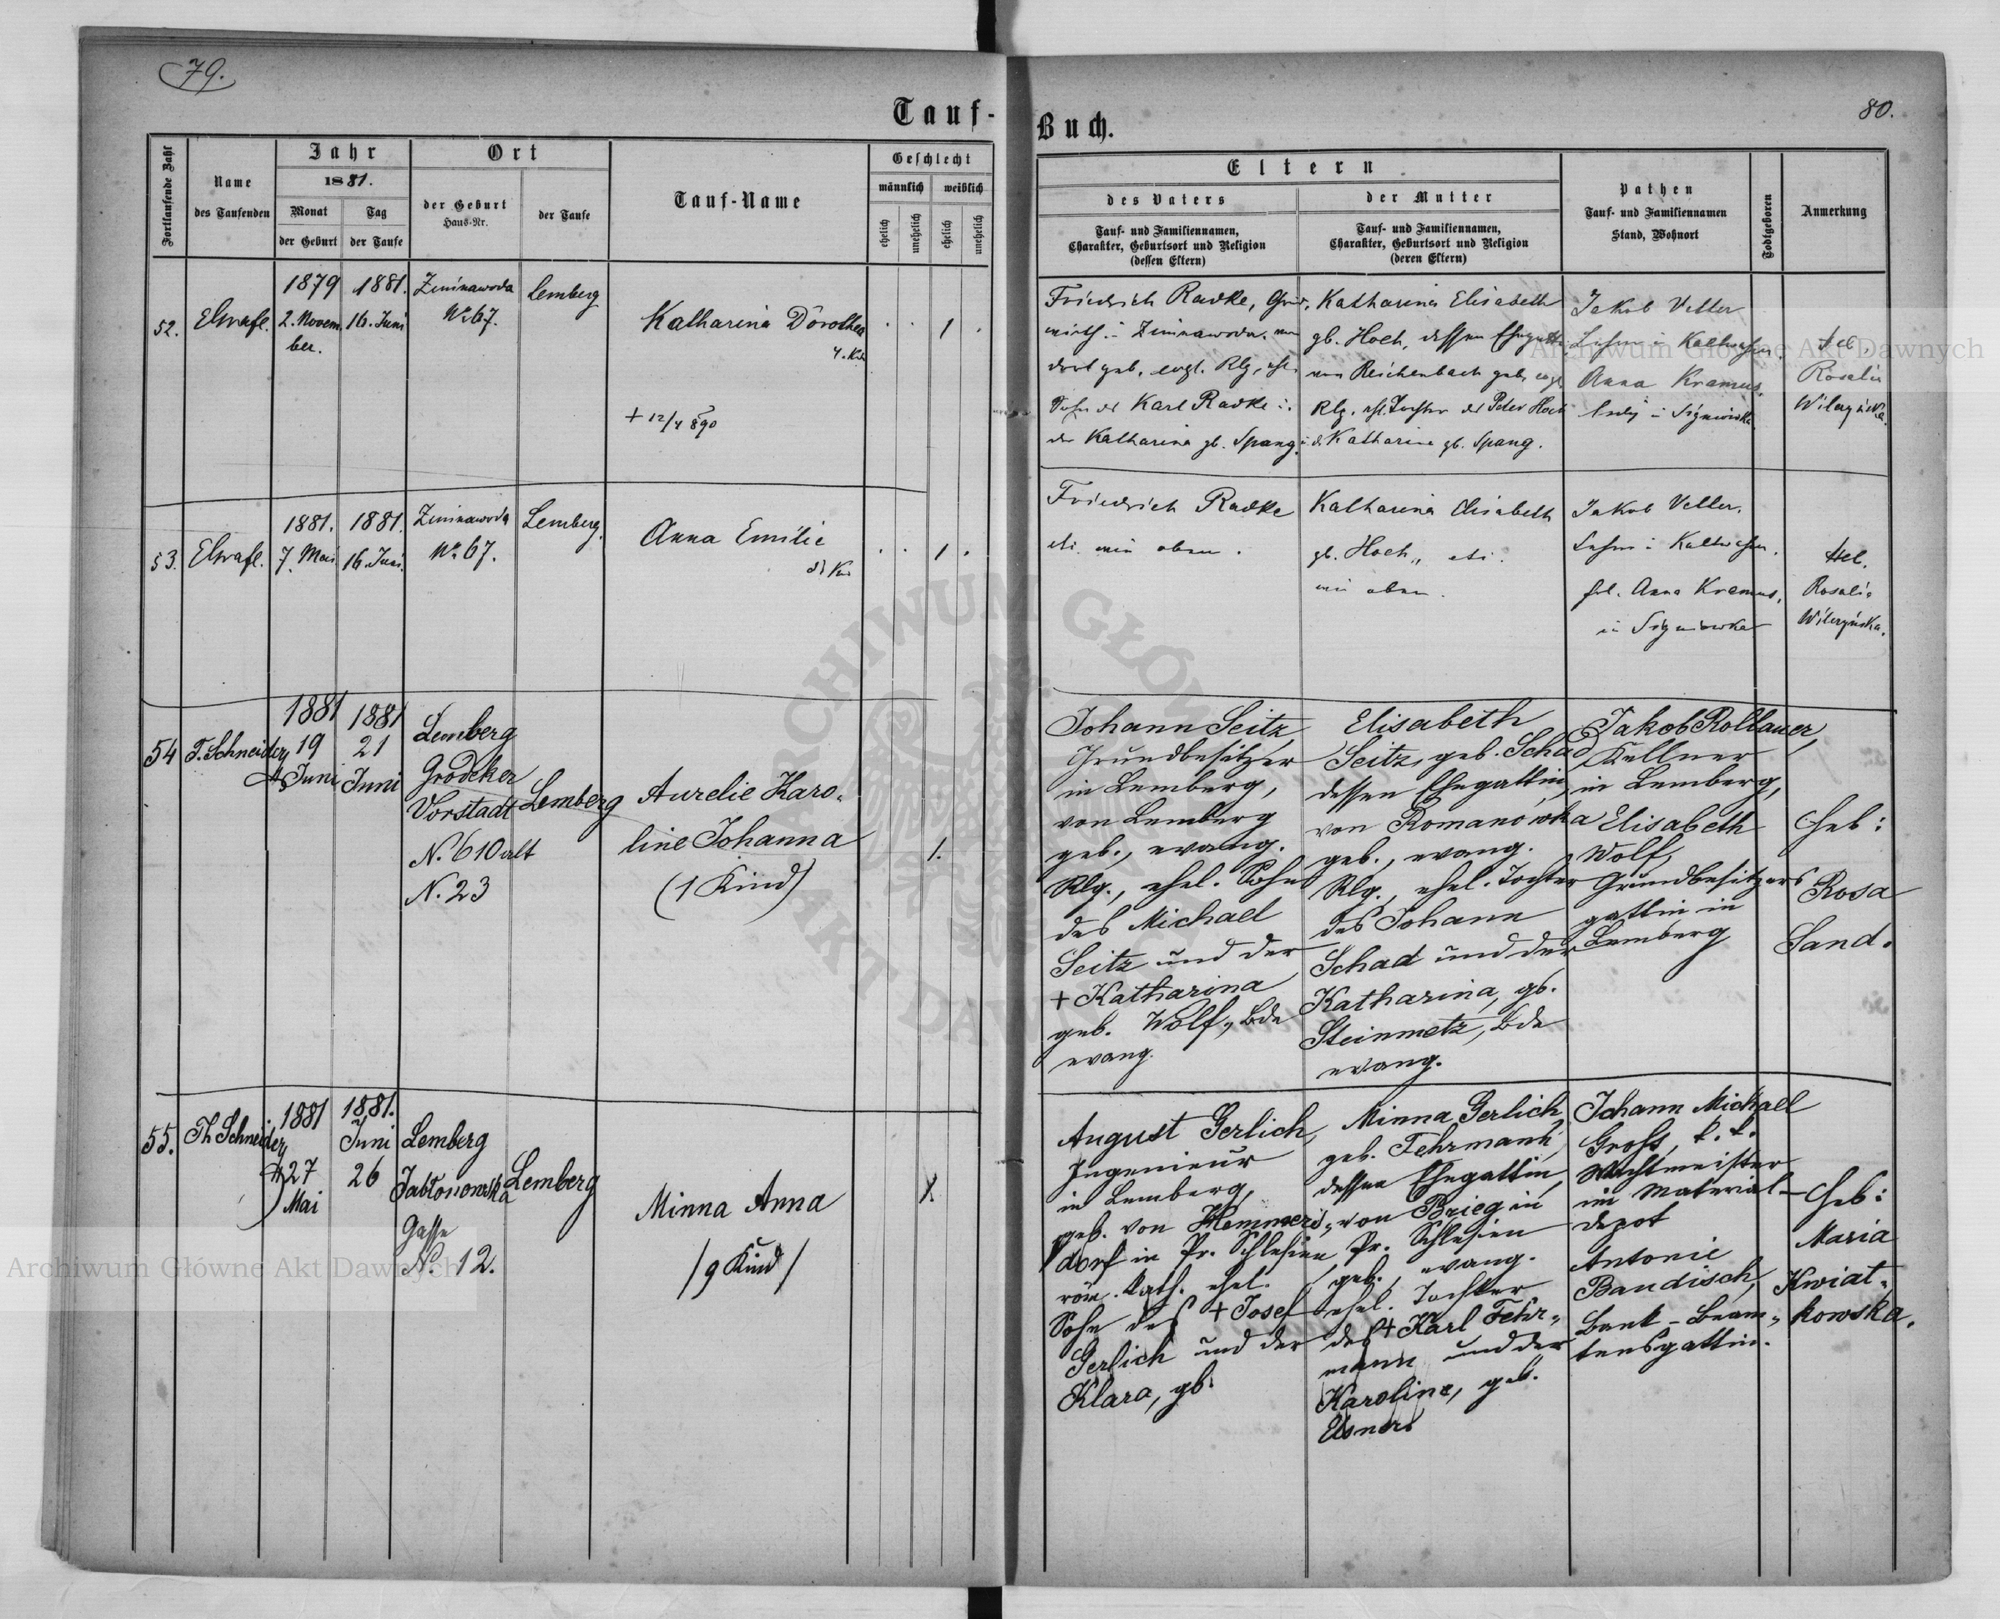 79.
80.
Tauf-
Buch.
Fortlaufende Zahl
Name
des Taufenden
Jahr
1881.
Monat
der Geburt
Tag
der Taufe
Ort
der Geburt
Haus-Nr.
der Taufe
Tauf-Name
Geschlecht
männlich
weiblich
ehelich
unehelich
ehelich
unehelich
Eltern
des Vaters
Tauf- und Familiennamen,
Charakter, Geburtsort und Religion
(dessen Eltern)
der Mutter
Tauf- und Familiennamen,
Charakter, Geburtsort und Religion
(deren Eltern)
Pathen
Tauf- und Familiennamen
Stand, Wohnort
Todtgeboren
Anmerkung
52.
1879
2. Novem
ber.
1881.
16. Juni
Zimnawoda
No 67.
Lemberg
Katharina Dorothea
4. Kd
+ 12/4 890
1
Friedrich Radke, Grund
wirth in Zimnawoda, von
dort geb. evgl. Rlg, ehl.
Sohn des Karl Radke u.
der Katharina gb. Spang
Katharina Elisabeth
gb. Hoch, dessen Ehegattin,
von Reichenbach geb. evgl.
Rlg. ehl. Tochter des Peter Hoch
u. d. Katharina gb. Spang.
Jakob Vetter
Anna Kramus,
ledig in Signiówka
Heb.
Rosalia
Wilczyńska.
53.
1881.
7. Mai
1881.
16. Juni.
Zimnawoda
No 67.
Lemberg.
Anna Emilie
1.
Friedrich Radke
etc. wie oben.
Katharina Elisabeth
gb. Hoch, etc.
wie oben.
Jakob Vetter.
frl. Anna Kramus,
in Signiówka
Heb.
Rosalia
Wilczyńska.
54
T. Schneider
1881
19
Juni
1881
21
Juni
Lemberg
Grodeker
Vorstadt
N. 610 alt
N. 23
Lemberg
Aurelie Karo-
line Johanna
(1 Kind)
1.
Johann Seitz,
Grundbesitzer
in Lemberg,
von Lemberg
geb., evang.
Rlg., ehel. Sohn
des Michael
Seitz und der
+ Katharina
geb. Wolf, bde
evang.
Elisabeth
Seitz, geb. Schad
dessen Ehegattin,
von Romanówka
geb., evang.
Rlg., ehel. Tochter
des Johann
Schad und der
Katharina, gb.
Steinmetz, bde
evang.
Jakob Rollauer,
Kellner
in Lemberg,
Elisabeth
Wolf,
Grundbesitzers
gattin in
Lemberg
Heb:
Rosa
Sand.
55.
Th. Schneider
1881
27
Mai
1881.
Juni
26
Lemberg
Jabłonowska
Gasse
N. 12.
Lemberg
Minna Anna
/9 Kind/
1.
August Gerlich,
Ingenieur
in Lemberg,
geb. von Hemmers-
dorf in Pr. Schlesien,
röm. kath. ehel.
Sohn des + Josef
Gerlich und der
Klara, gb.
Minna Gerlich,
geb. Fehrmann,
dessen Ehegattin,
von Brieg in
Pr. Schlesien
geb., evang.
ehel. Tochter
des + Karl Fehr-
mann und der
Karoline, geb.
Elsner
Johann Michael
Groß, k. k.
Wachtmeister
im Material-
depot
Antonie
Baudisch,
Bank-Beam-
tensgattin.
Heb:
Maria
Kwiat-
kowska.
Archiwum Główne Akt Dawnych
Archiwum Główne Akt Dawnych
ARCHIWUM GŁÓWNE AKT DAWNYCH